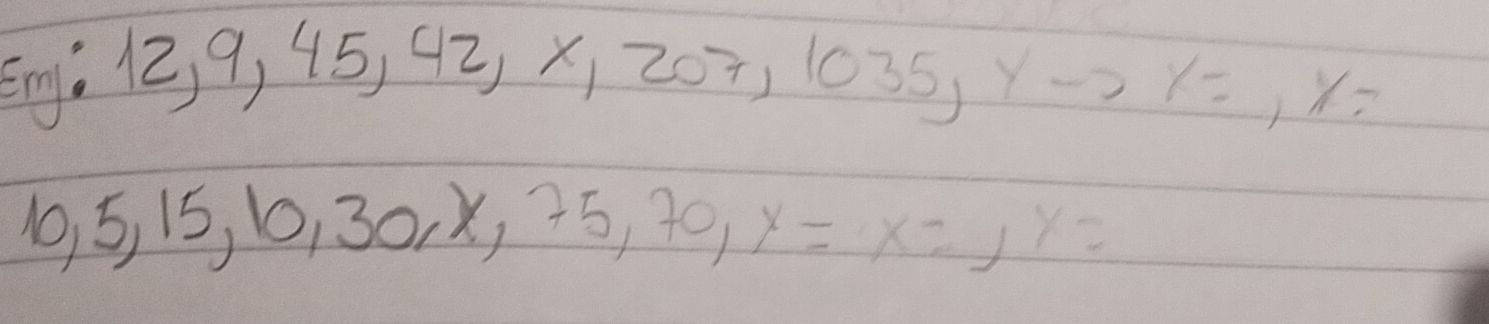 Emj: 12, 9, 45, 42, x, 207, 1035, Y -> X= , X=
10, 5, 15, 10, 30, X, 75, 70, Y = x= , Y=